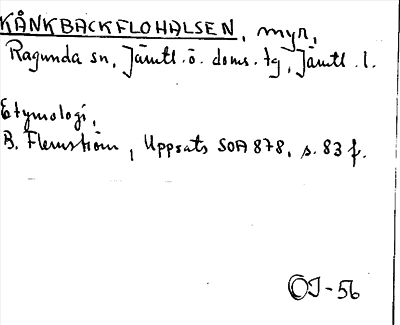 KÅNKBACKFLOHALSEN, myr,
Ragunda sn, Jämtl. ö. doms. tg, Jämtl. l.
Etymologi,
B. Flemström, Uppsats SOA 878, s. 83 f.
OJ-56